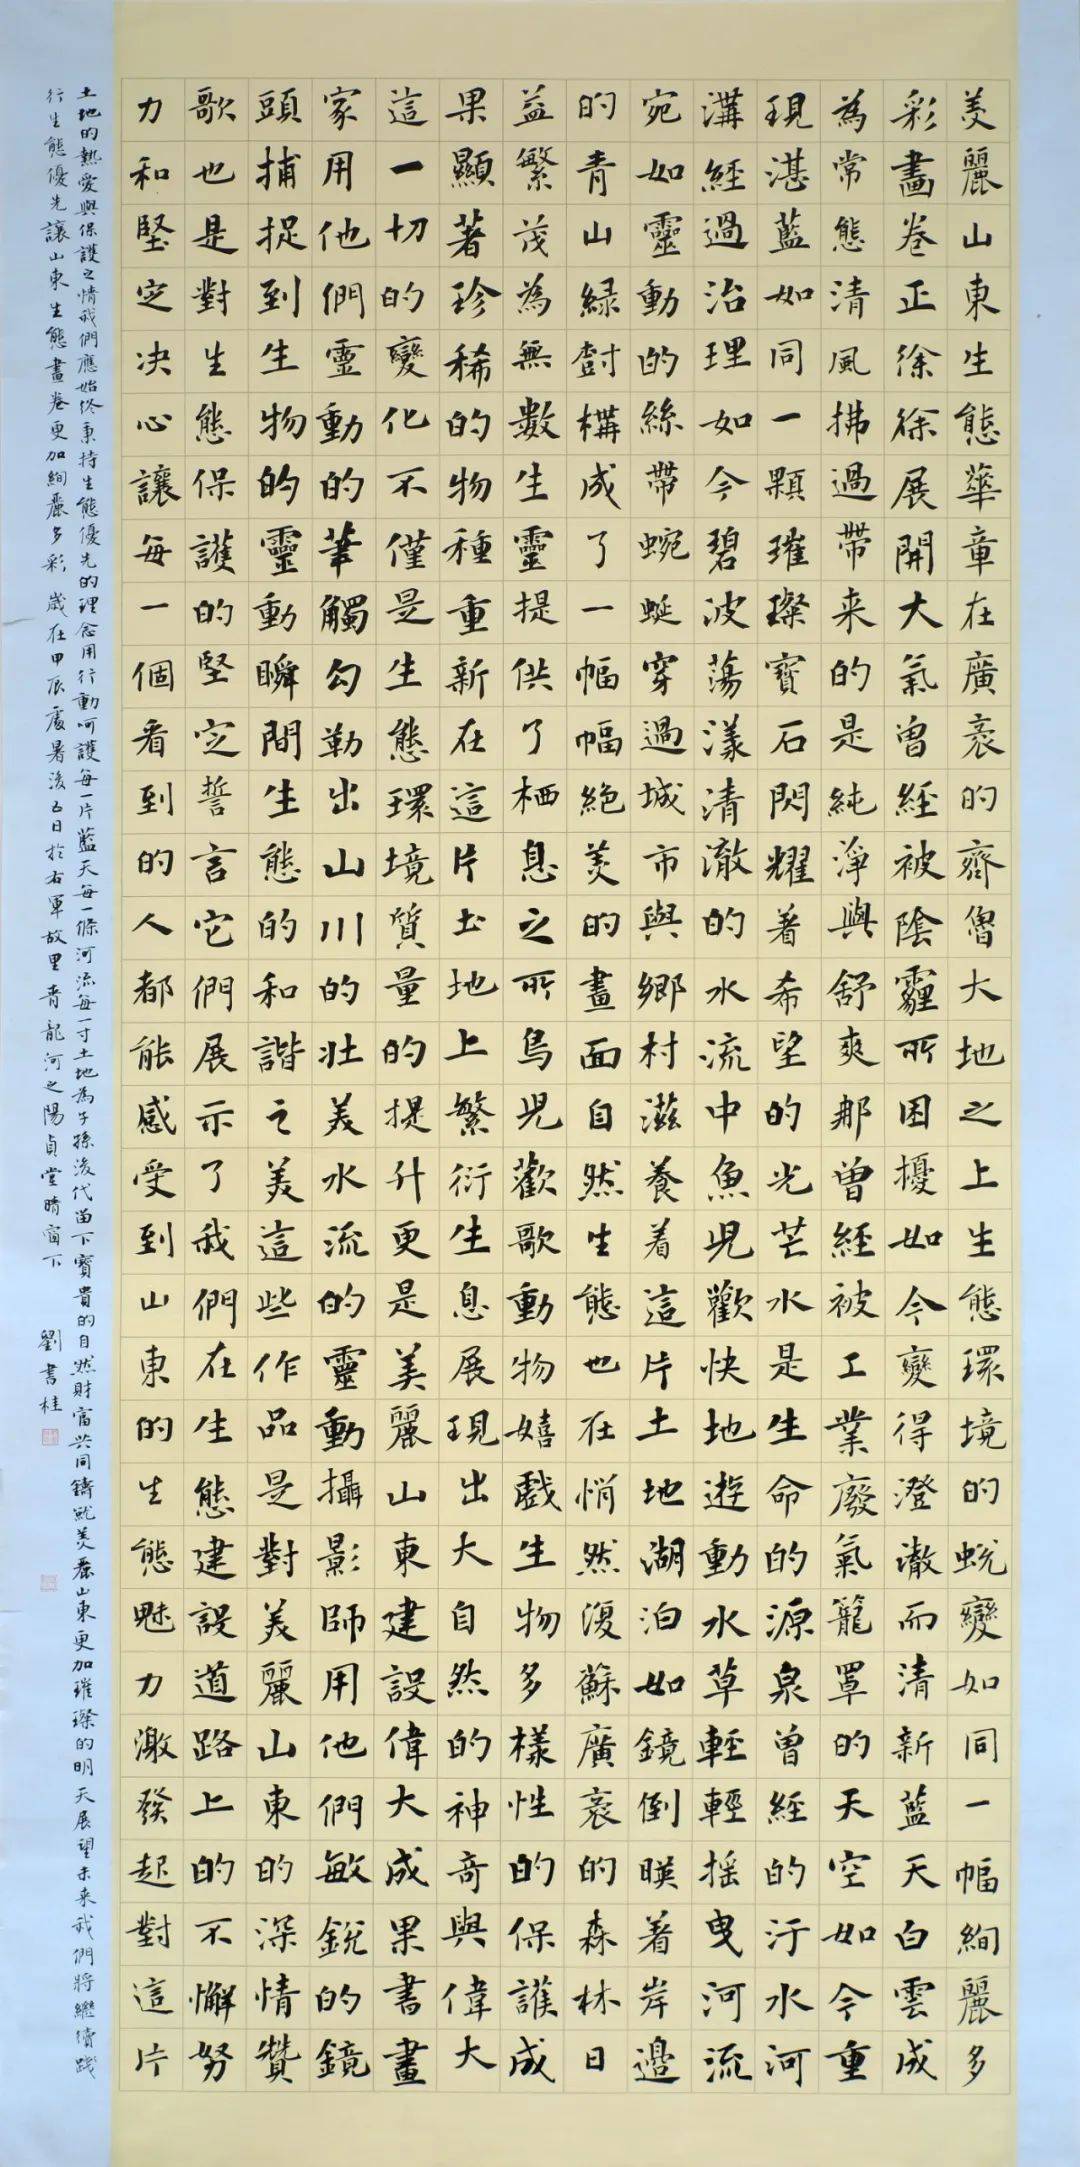 美麗山東生態華章在廣袤的齊魯大地之上生態環境的蛻變如同一幅絢麗多
彩畫卷正徐徐展開大氣曾經被陰霾所困擾如今變得澄澈而清新藍天白雲成
為常態清風拂過帶来的是純淨與舒爽那曾經被工業廢氣籠罩的天空如今重
現湛藍如同一顆璀璨寶石閃耀著希望的光芒水是生命的源泉曾經的汙水河
溝經過治理如今碧波蕩漾清澈的水流中魚児歡快地遊動水草輕輕摇曳河流
宛如靈動的絲帶蜿蜒穿過城市與鄉村滋養着這片土地湖泊如鏡倒暎着岸邊
的青山緑樹構成了一幅幅絶美的畫面自然生態也在悄然復蘇廣袤的森林日
益繁茂為無數生靈提供了栖息之所鳥児歡歌動物嬉戲生物多樣性的保護成
果顯著珍稀的物種重新在這片土地上繁衍生息展現出大自然的神奇與偉大
這一切的變化不僅是生態環境質量的提升更是美麗山東建設偉大成果書畫
家用他們靈動的筆觸勾勒出山川的壯美水流的靈動攝影師用他們敏銳的鏡
頭捕捉到生物的靈動瞬間生態的和諧之美這些作品是對美麗山東的深情贊
歌也是對生態保護的堅定誓言它們展示了我們在生態建設道路上的不懈努
力和堅定决心讓每一個看到的人都能感受到山東的生態魅力激發起對這片
土地的熱愛與保護之情我們應始终秉持生態優先的理念用行動呵護每一片藍天每一條河流每一寸土地為子孫後代留下寶貴的自然財富共同鑄就美麗山東更加璀璨的明天展望未来我們將繼續踐
行生態優先讓山東生態畫卷更加絢麗多彩 歲在甲辰處暑後五日於右軍故里青龍河之陽貞堂晴窗下 劉書桂